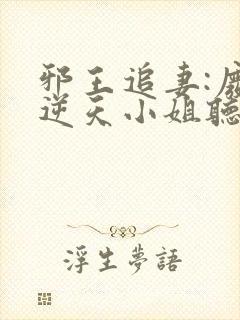 邪王追妻:廢
逆天小姐聽
浮生夢語